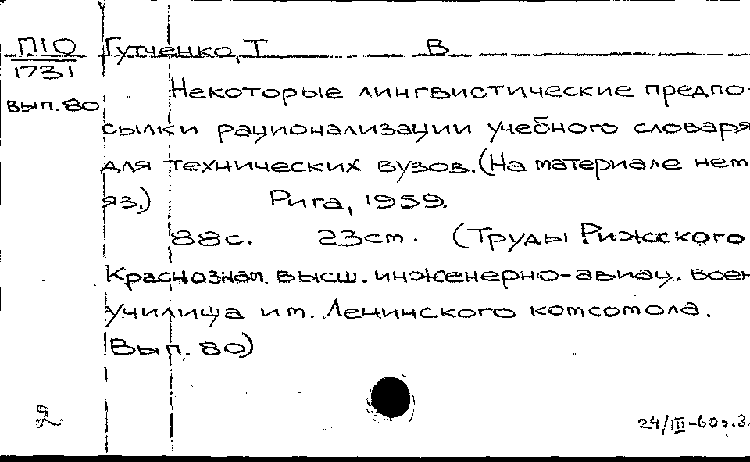 П10 Гутченко, Т В
1731
вып. 80
Некоторые лингвистические предпо-
сылки рационализации учебного словаря
для технических вузов. (На материале нем.
яз.) Рига, 1959.
88с. 23см. (Труды Рижского
Краснознам. высш. инженерно-авиац. воен.
училища им. Ленинского комсомола.
Вып. 80)
24/III-60г.